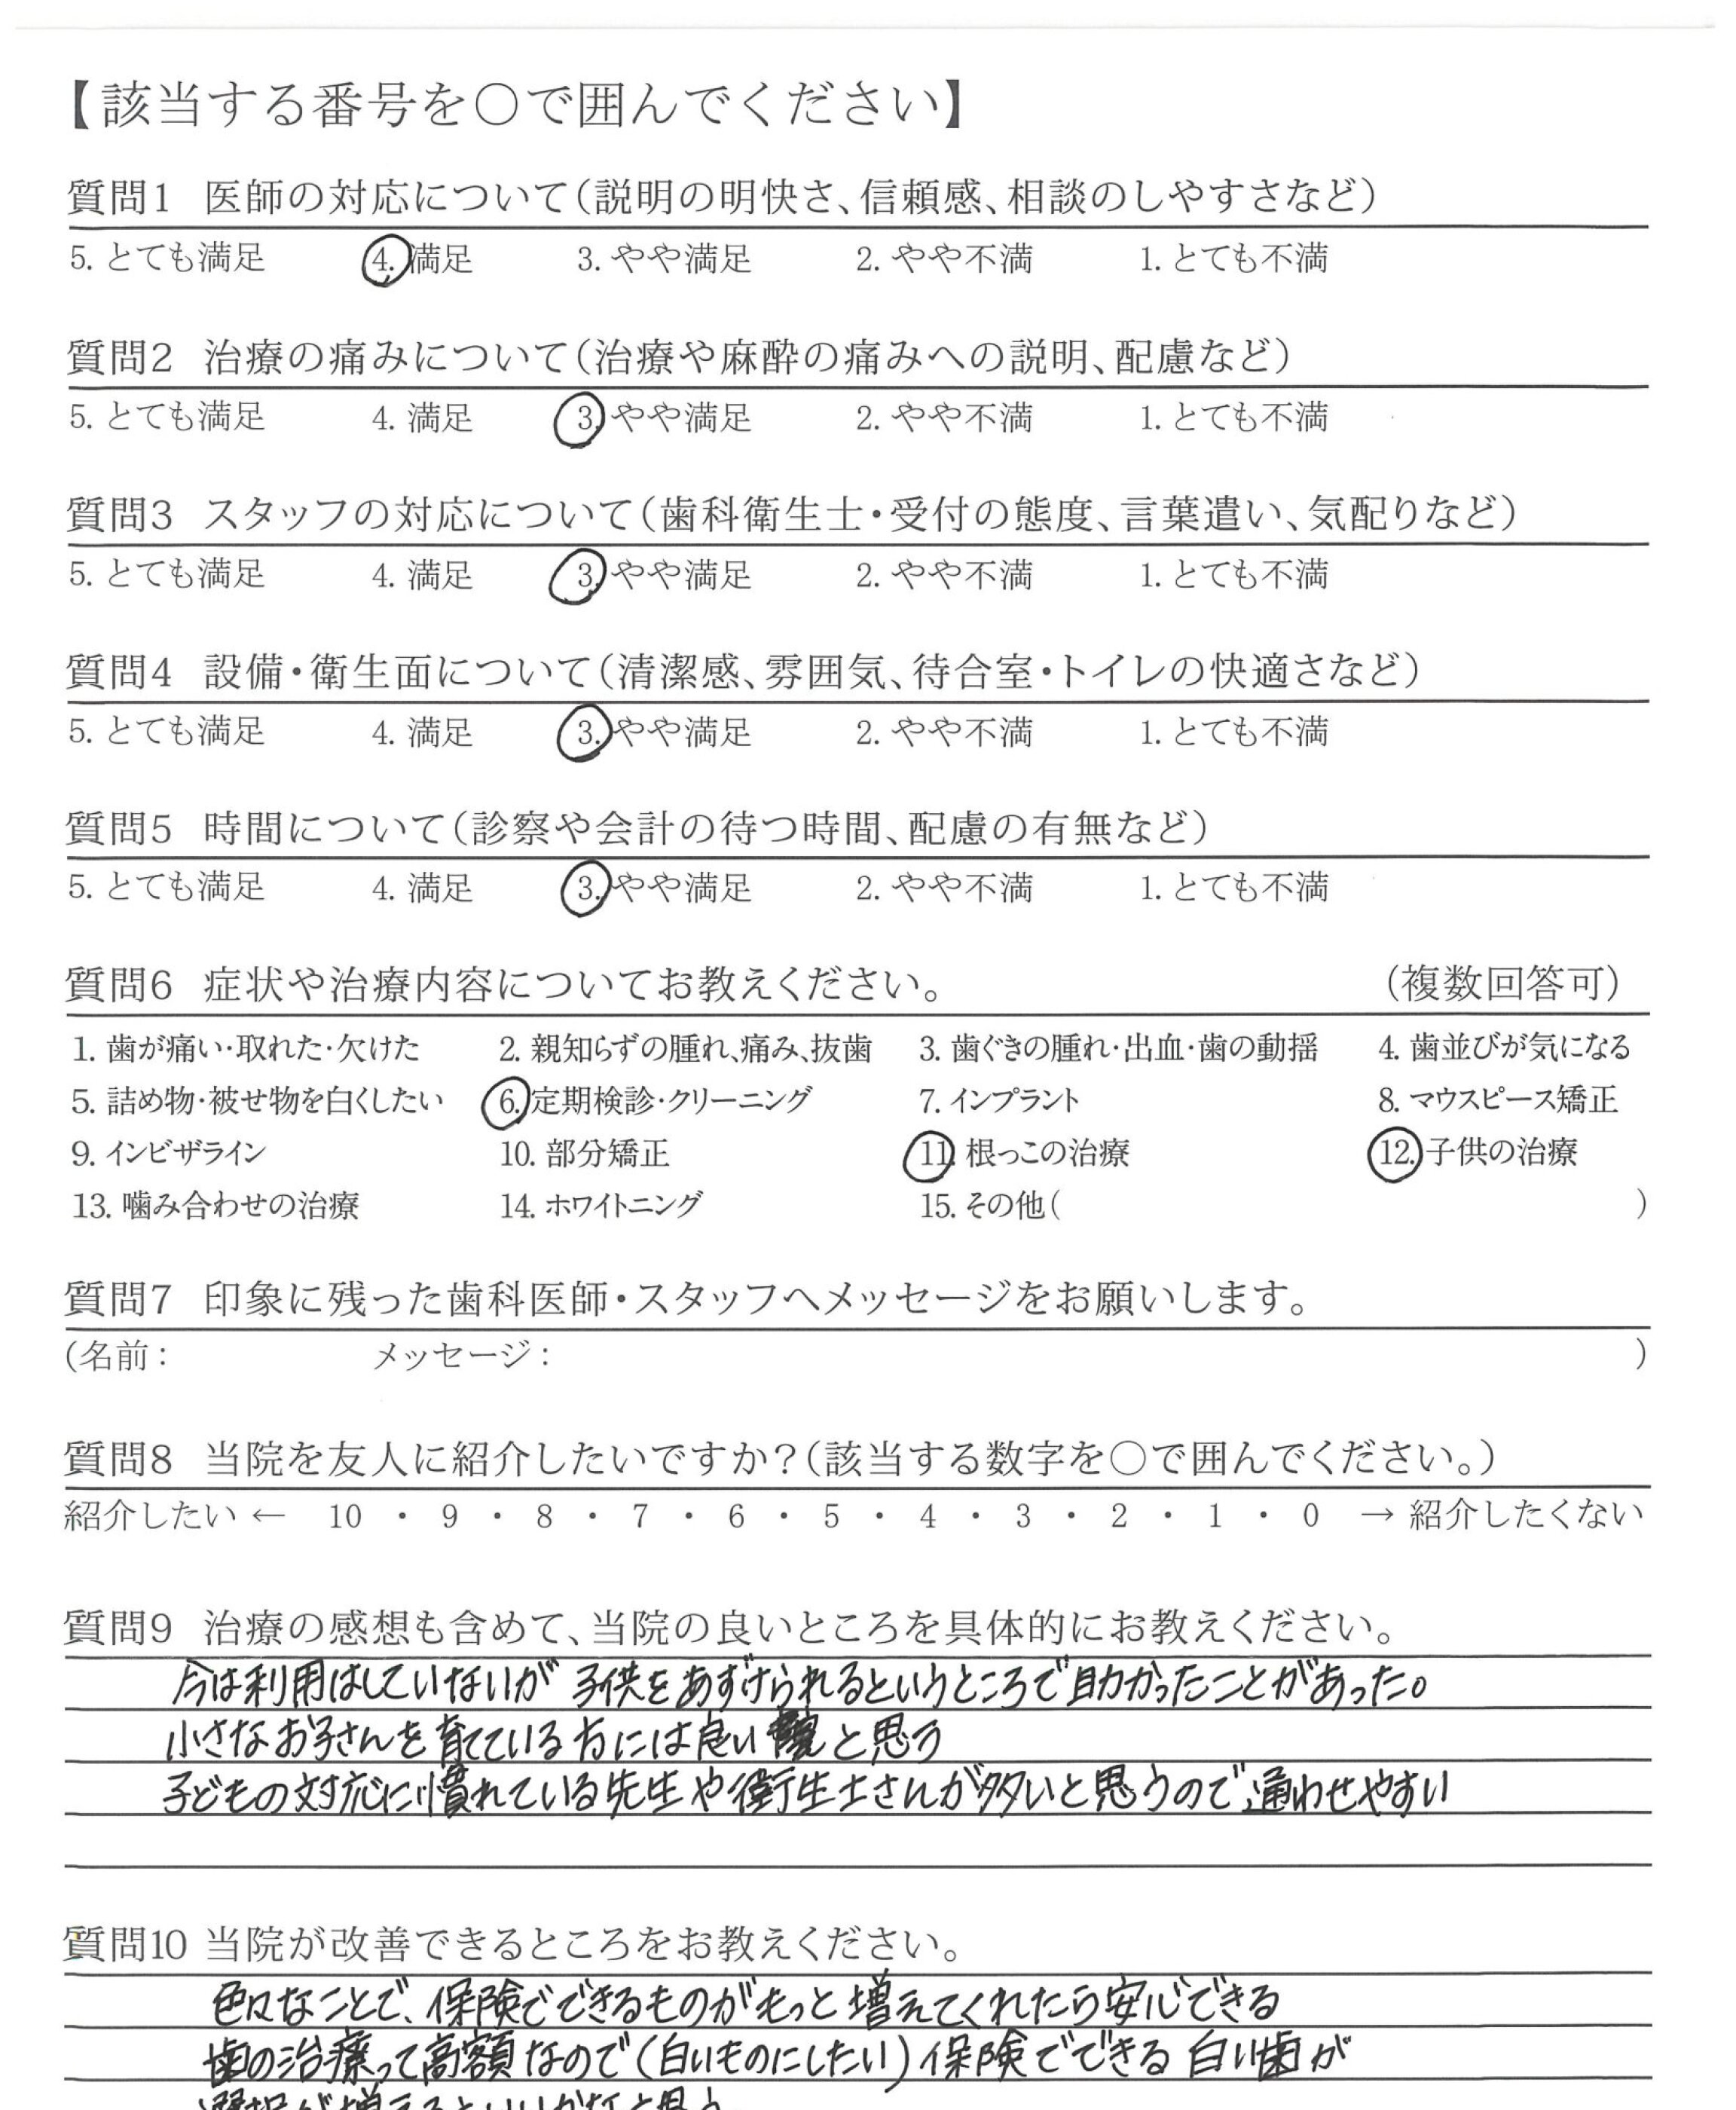 【該当する番号を○で囲んでください】
質問1 医師の対応について(説明の明快さ、信頼感、相談のしやすさなど)
5. とても満足 4. 満足 3. やや満足 2. やや不満 1. とても不満
質問2 治療の痛みについて(治療や麻酔の痛みへの説明、配慮など)
5. とても満足 4. 満足 3. やや満足 2. やや不満 1. とても不満
質問3 スタッフの対応について(歯科衛生士・受付の態度、言葉遣い、気配りなど)
5. とても満足 4. 満足 3. やや満足 2. やや不満 1. とても不満
質問4 設備・衛生面について(清潔感、雰囲気、待合室・トイレの快適さなど)
5. とても満足 4. 満足 3. やや満足 2. やや不満 1. とても不満
質問5 時間について(診察や会計の待つ時間、配慮の有無など)
5. とても満足 4. 満足 3. やや満足 2. やや不満 1. とても不満
質問6 症状や治療内容についてお教えください。 (複数回答可)
1. 歯が痛い・取れた・欠けた 2. 親知らずの腫れ、痛み、抜歯 3. 歯ぐきの腫れ・出血・歯の動揺 4. 歯並びが気になる
5. 詰め物・被せ物を白くしたい 6. 定期検診・クリーニング 7. インプラント 8. マウスピース矯正
9. インビザライン 10. 部分矯正 11. 根っこの治療 12. 子供の治療
13. 噛み合わせの治療 14. ホワイトニング 15. その他( )
質問7 印象に残った歯科医師・スタッフへメッセージをお願いします。
(名前: メッセージ: )
質問8 当院を友人に紹介したいですか?(該当する数字を○で囲んでください。)
紹介したい ← 10 ・ 9 ・ 8 ・ 7 ・ 6 ・ 5 ・ 4 ・ 3 ・ 2 ・ 1 ・ 0 → 紹介したくない
質問9 治療の感想も含めて、当院の良いところを具体的にお教えください。
今は利用はしていないが 子供をあずけられるというところで助かったことがあった。
小さなお子さんを育てている方には良い と思う
子どもの対応に慣れている先生や衛生士さんが多いと思うので通わせやすい
質問10 当院が改善できるところをお教えください。
色々なことで、保険でできるものがもっと増えてくれたら安心できる
歯の治療って高額なので(白いものにしたい)保険でできる白い歯が
選択が増えるといいかなと思う。